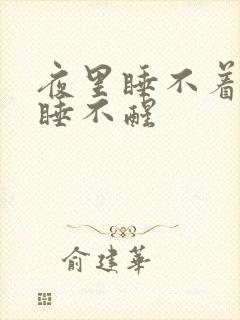 夜里睡不着
睡不醒
俞建华